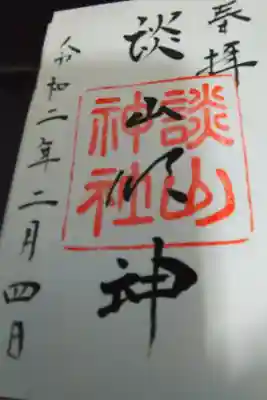 奉拝
談山明神
談山
神社
令和二年二月四日